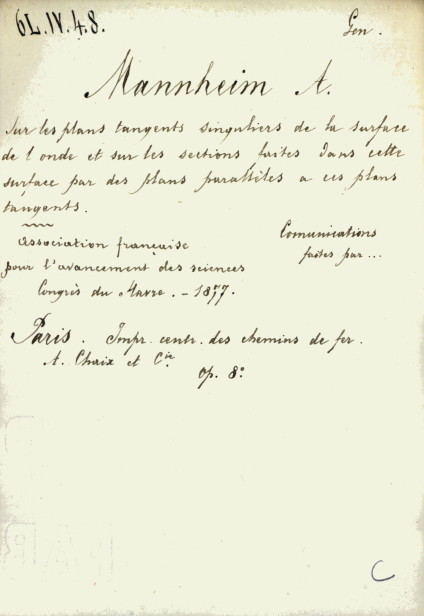 6L.IV.4.8.
Gen.
Mannheim A.
Sur les plans tangents singuliers de la surface
de l'onde et sur les sections faites dans cette
surface par des plans parallèles a ces plans
tangents.
Association française
pour l'avancement des sciences
Congrès du Havre. - 1877.
Comunications
faites par...
Paris. Impr. centr. des chemins de fer.
A. Chaix et Cie
Op. 8°
C